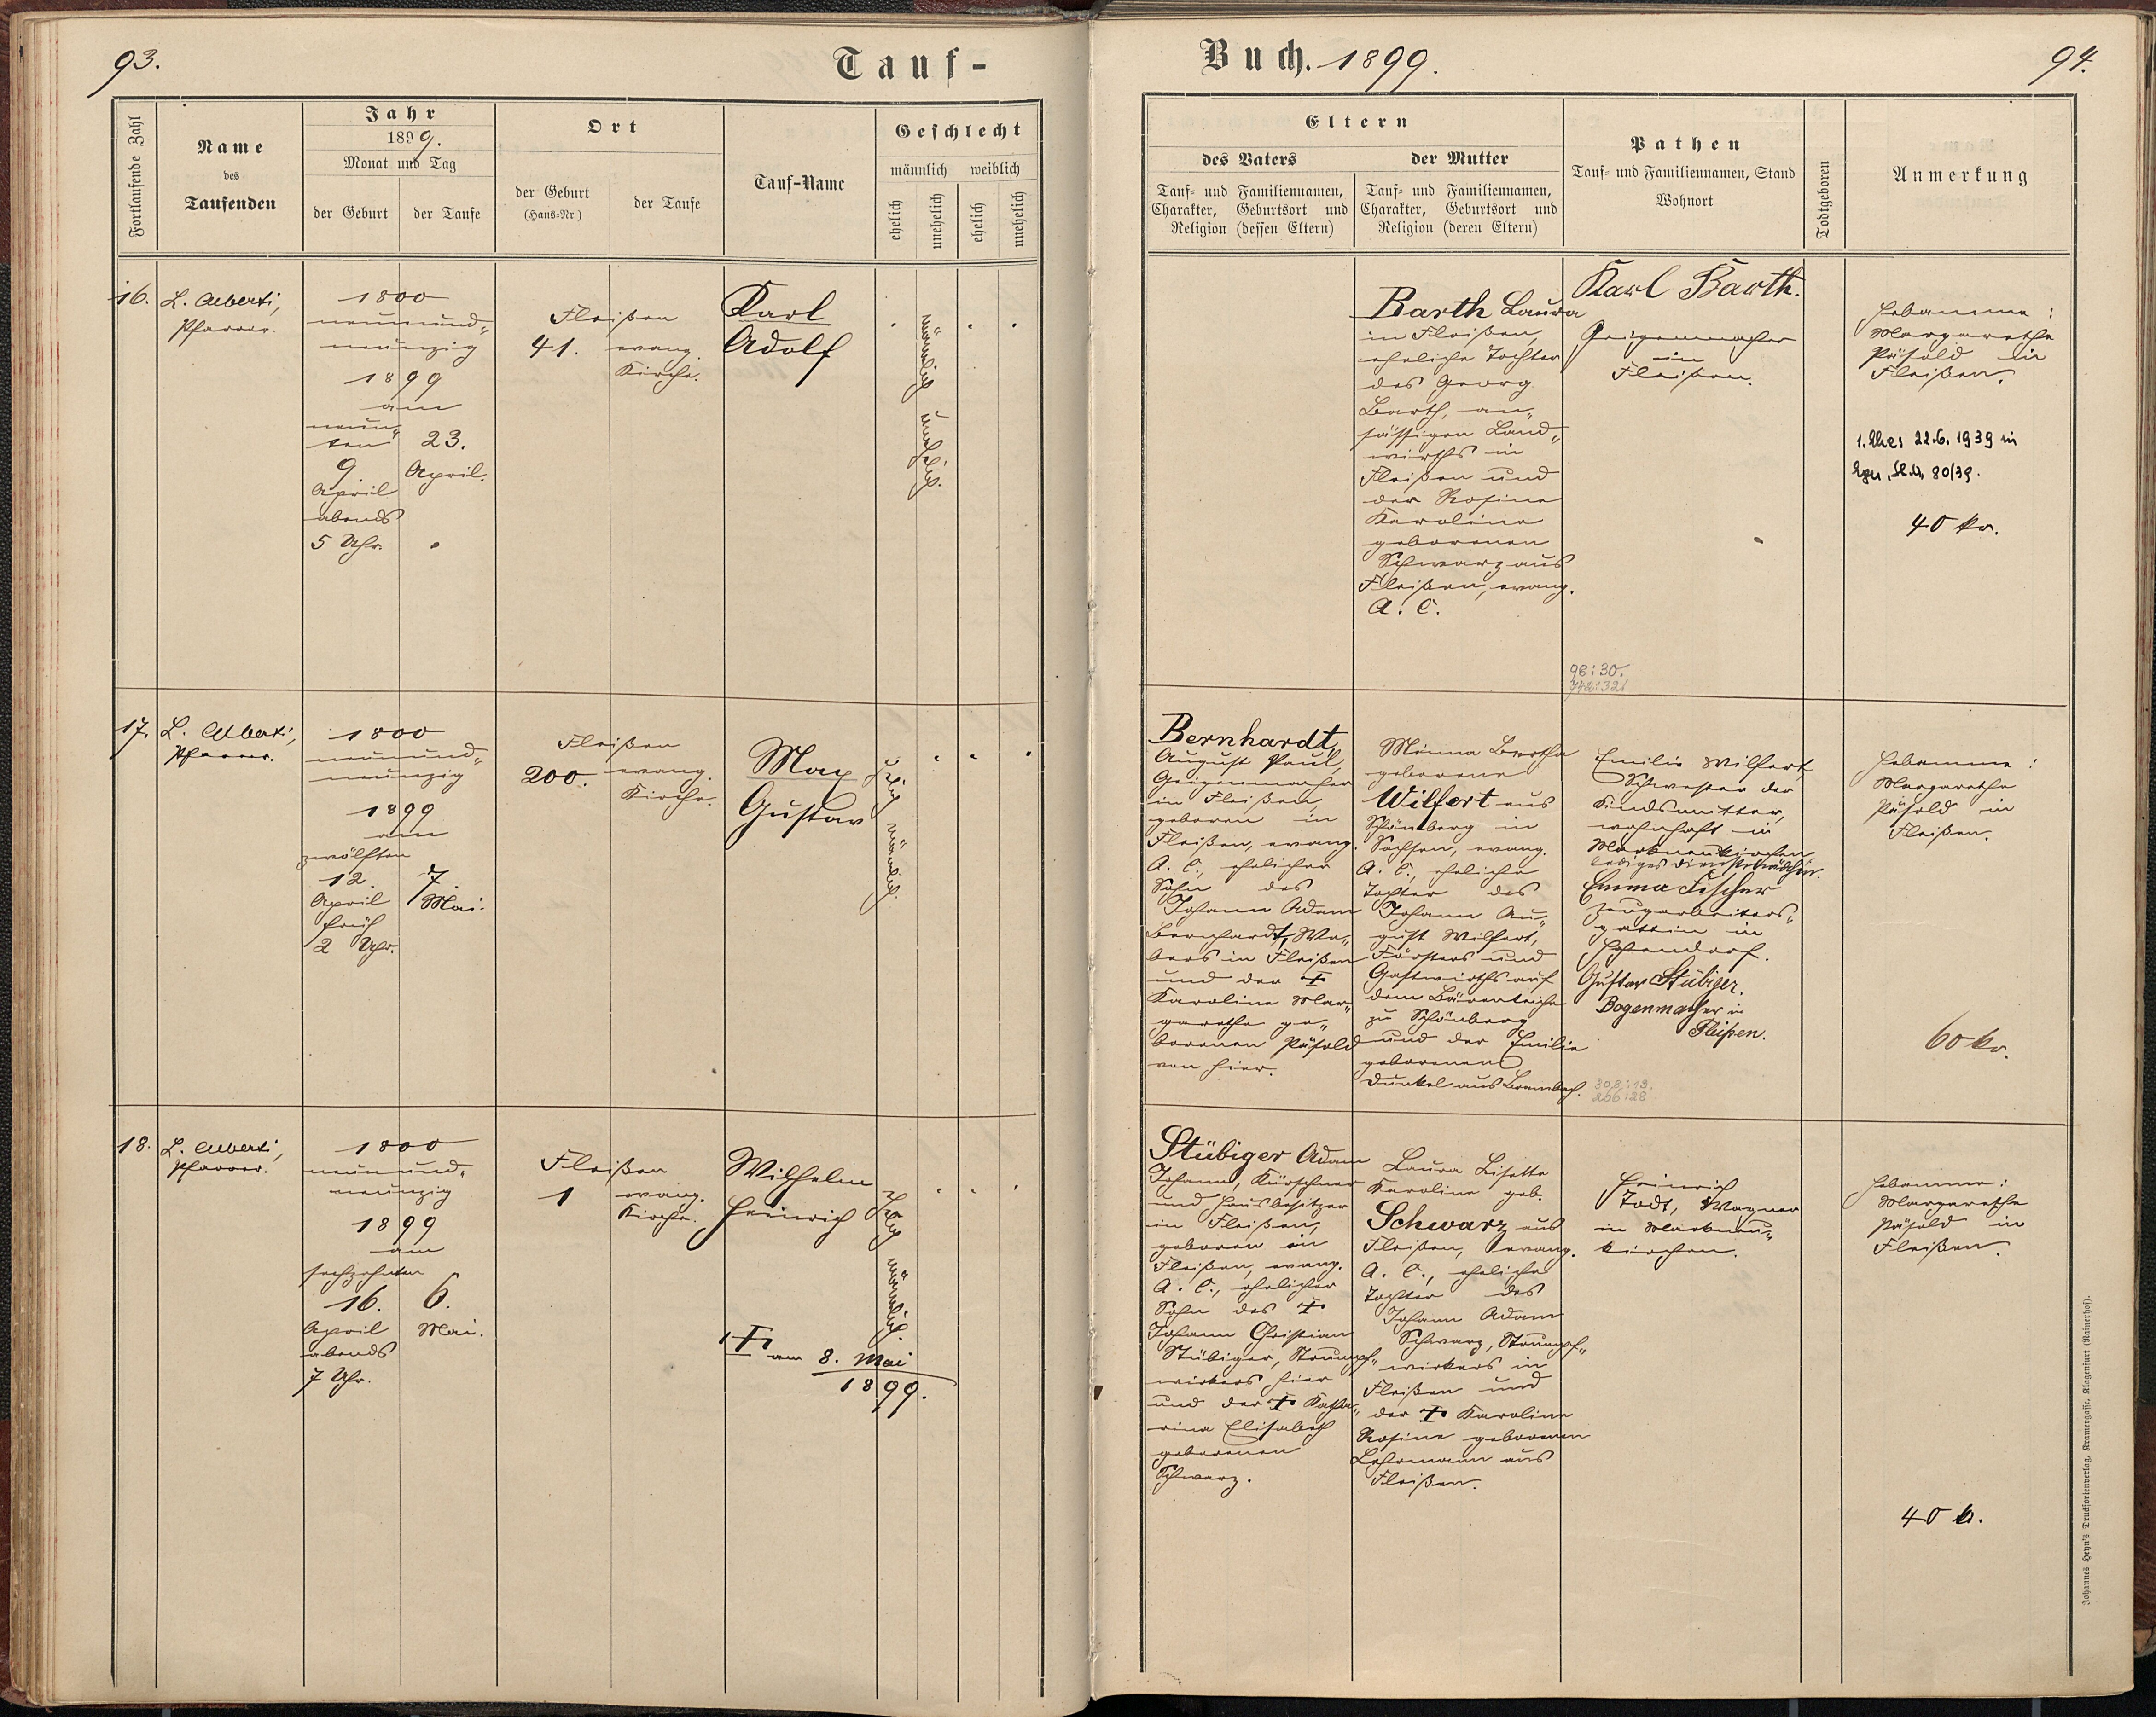 93.
Tauf-
Fortlaufende Zahl
Name
des
Taufenden
Jahr
1899.
Monat und Tag
der Geburt
der Taufe
Ort
der Geburt
(Haus-Nr)
der Taufe
Tauf-Name
Geschlecht
männlich weiblich
ehelich
unehelich
ehelich
unehelich
16.
L. Alberti,
Pfarrer.
1800
neunund-
neunzig
1899
am
neun-
ten
9.
April
abends
5 Uhr.
23.
April.
Fleißen
41.
evang.
Kirche.
Karl
Adolf
männlich unehelich.
17.
L. Alberti,
Pfarrer.
1800
neunund-
neunzig
1899
am
zwölften
12.
April
früh
2 Uhr.
7.
Mai.
Fleißen
200.
evang.
Kirche.
Max
Gustav
ehelich männlich.
18.
L. Alberti,
Pfarrer.
1800
neunund-
neunzig
1899
am
sechzehnten
16.
April
abends
7 Uhr.
6.
Mai.
Fleißen
1
evang.
Kirche.
Wilhelm
Heinrich
ehelich männlich.
† am 8. Mai
1899.
Buch. 1899.
94.
Eltern
des Vaters
der Mutter
Tauf- und Familiennamen,
Charakter, Geburtsort und
Religion (dessen Eltern)
Tauf- und Familiennamen,
Charakter, Geburtsort und
Religion (deren Eltern)
Pathen
Tauf- und Familiennamen, Stand
Wohnort
Todtgeboren
Anmerkung
Barth Laura
in Fleißen,
eheliche Tochter
des Georg
Barth, an-
sässigen Land-
wirths in
Fleißen und
der Rosine
Karoline
geborenen
Schwarz aus
Fleißen, evang.
A. C.
Karl Barth.
Geigenmacher
in
Fleißen.
98:30.
742:321
Hebamme:
Margarethe
Päsold in
Fleißen.
1. Ehe: 22.6.1939 in
Eger, St.A. 80/39.
40 kr.
Bernhardt,
August Paul,
Geigenmacher
in Fleißen,
geboren in
Fleißen, evang.
A. C., ehelicher
Sohn des
Johann Adam
Bernhardt, We-
bers in Fleißen
und der †
Karoline Mar-
garethe ge-
borenen Päsold
von hier.
Minna Bertha
geborene
Wilfert aus
Schönberg in
Sachsen, evang.
A. C., eheliche
Tochter des
Johann Au-
gust Wilfert,
Försters und
Gastwirths auf
dem Bärenteiche
zu Schönberg
und der Emilie
geborenen
Dunkel aus Brambach.
Emilie Wilfert,
Schwester der
Kindsmutter,
wohnhaft in
Markneukirchen
lediges Dienstmädchen.
Emma Fischer
Zeugarbeiters-
gattin in
Hohendorf.
Gustav Stübiger.
Bogenmacher in
Fleißen.
308:13.
266:28
Hebamme:
Margarethe
Päsold in
Fleißen.
60 kr.
Stübiger Adam
Johann, Kürschner
und Hausbesitzer
in Fleißen,
geboren in
Fleißen, evang.
A. C., ehelicher
Sohn des †
Johann Christian
Stübiger, Strumpf-
wirkers hier
und der † Katha-
rina Elisabeth
geborenen
Schwarz.
Laura Lisette
Karoline geb.
Schwarz aus
Fleißen, evang.
A. C., eheliche
Tochter des
Johann Adam
Schwarz, Strumpf-
wirkers in
Fleißen und
der † Karoline
Rosine geborenen
Lehrmann aus
Fleißen.
Heinrich
Todt, Wagner
in Markneu-
kirchen.
Hebamme:
Margarethe
Päsold in
Fleißen.
40 kr.
Johannes Heyn's Drucksortenverlag, Kramergasse, Klagenfurt (Rainerhof).